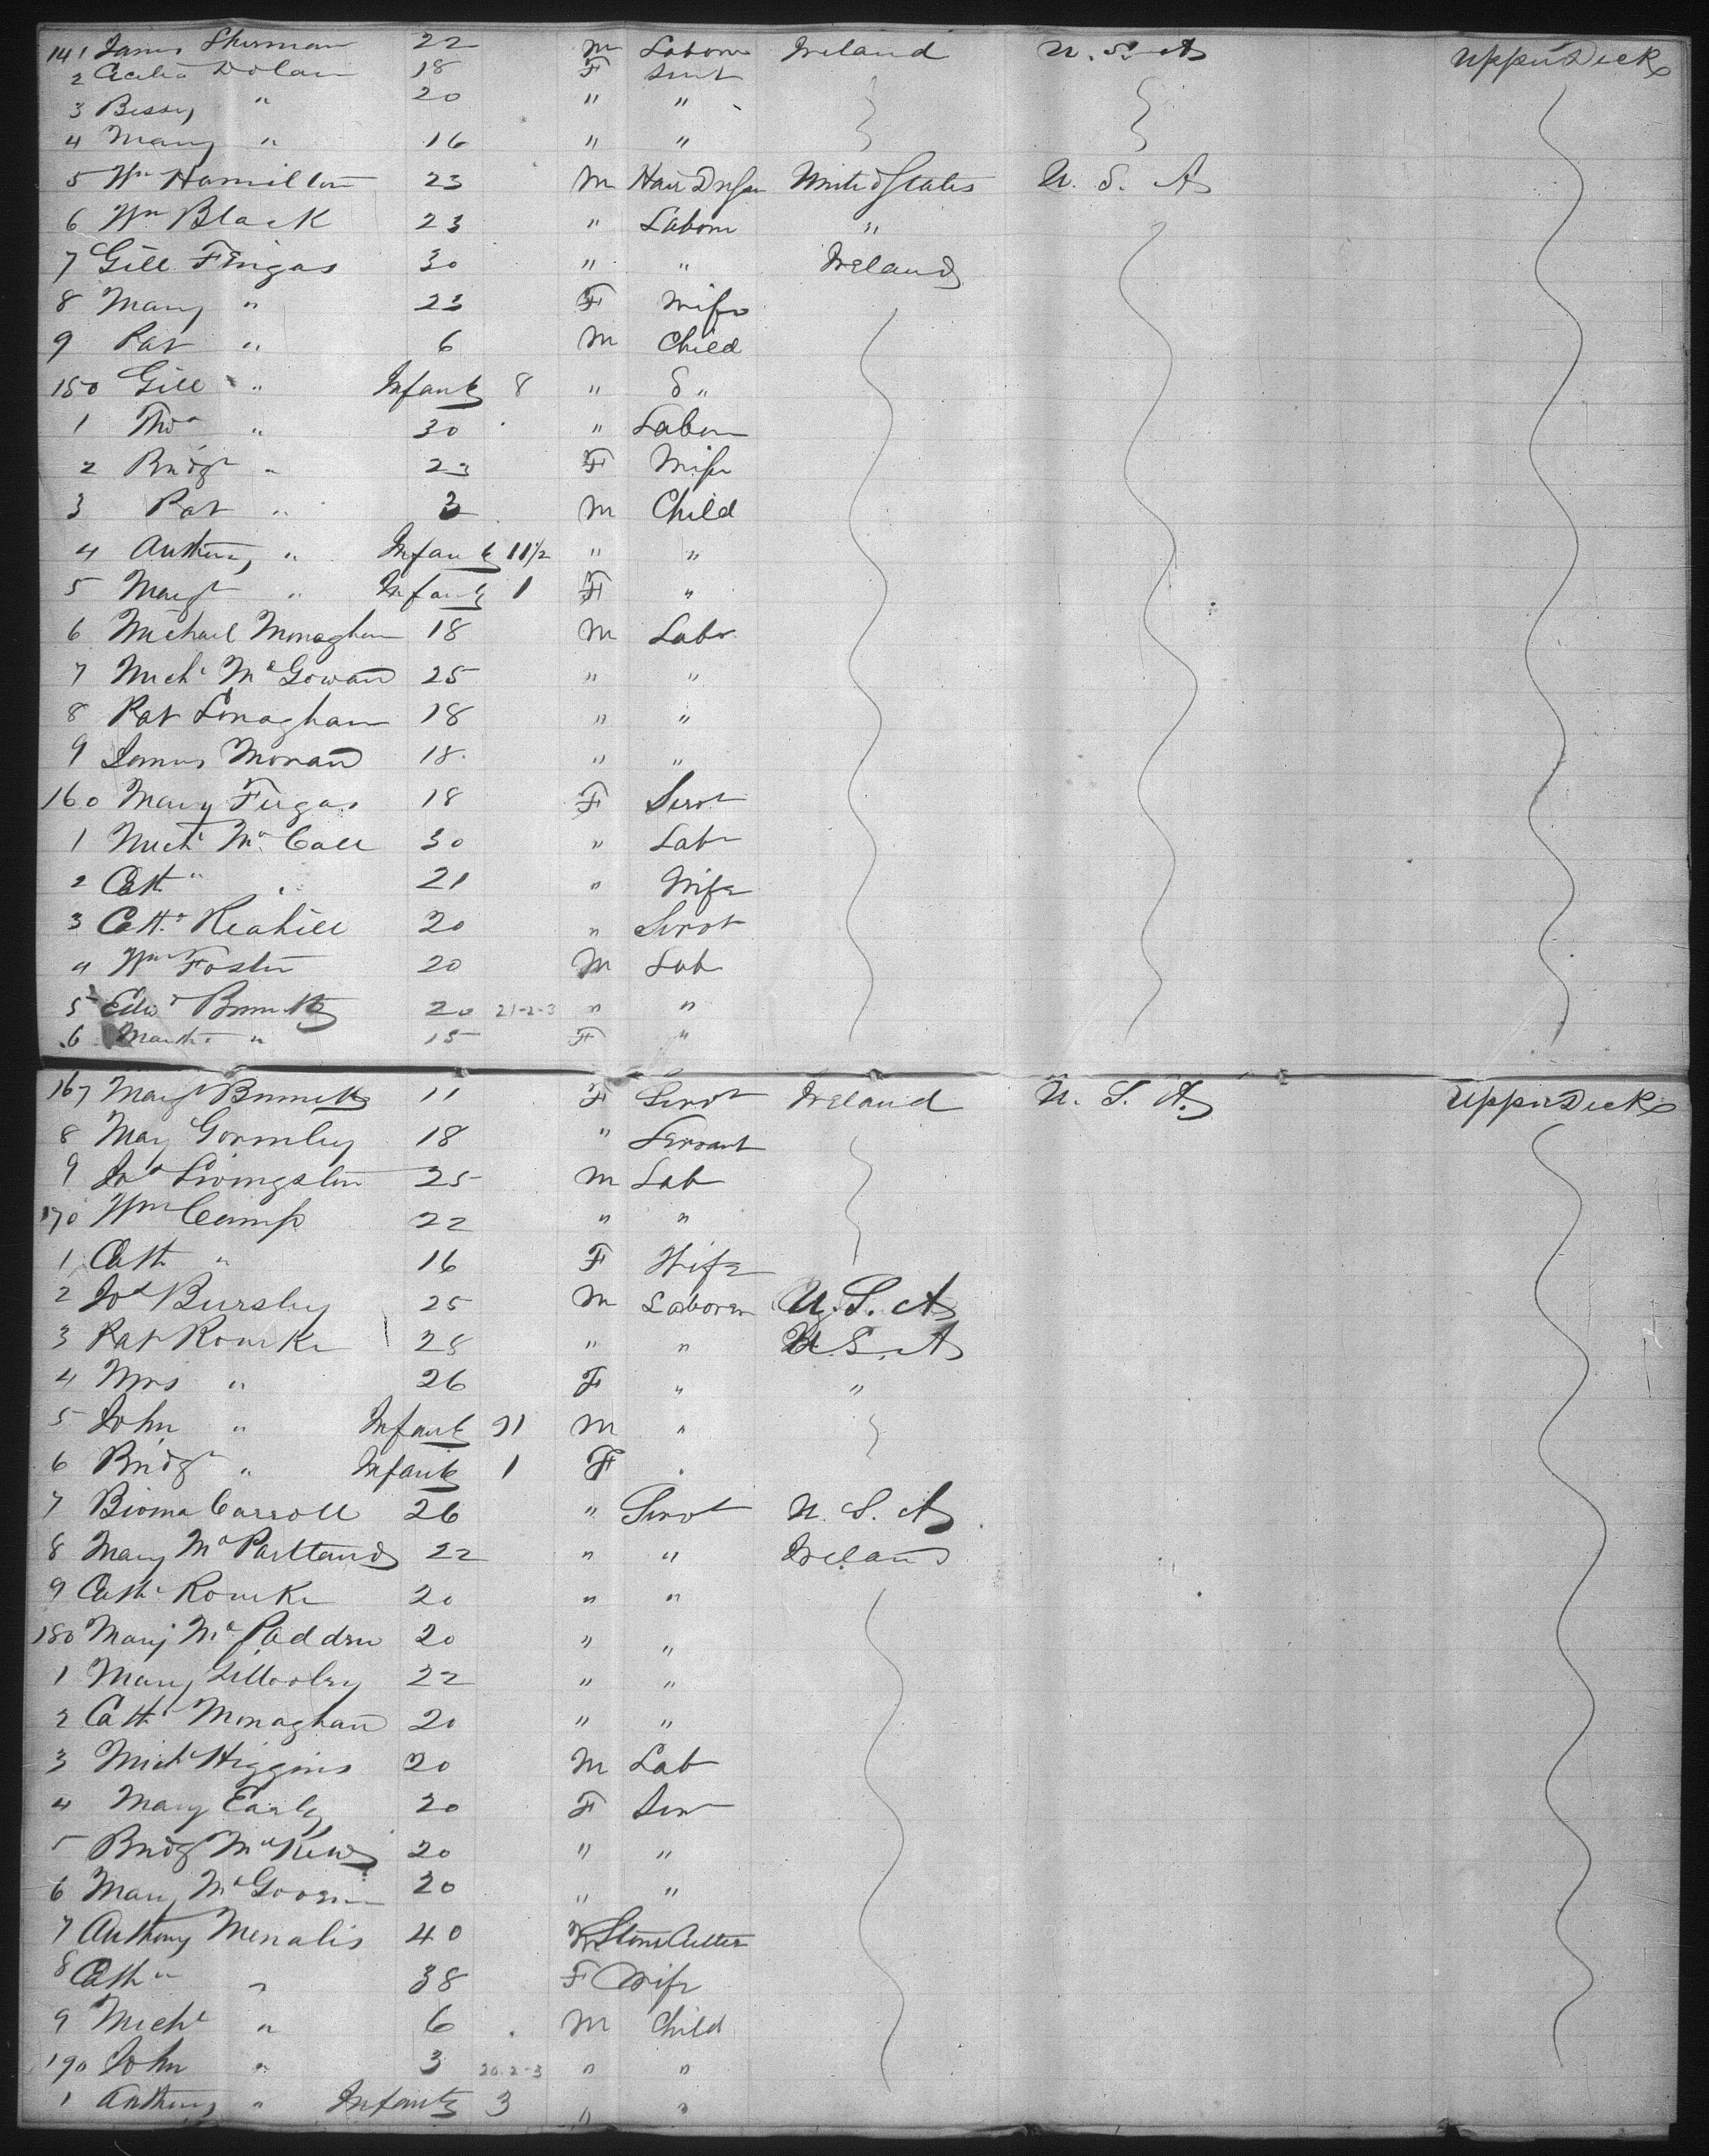 141 James Sherman 22 M Laborer Ireland U.S.A Upper Deck
2 Cecilia Dolan 18 F Servt
3 Bessy " 20 " "
4 Mary " 16 " "
5 Wm Hamilton 23 M Hair Dresser United States U. S. A
6 Wm Black 23 " Laborer "
7 Gill Fergas 30 " " Ireland
8 Mary " 23 F Wife
9 Pat " 6 M Child
150 Gill " Infant 8 " "
1 Thos " 30 " Laborer
2 Bridgt " 23 F Wife
3 Pat " 3 M Child
4 Anthony " Infant 11½ " "
5 Margt " Infant 1 F "
6 Michael Monaghan 18 M Labr
7 Michl McGowan 25 " "
8 Pat Lonaghan 18 " "
9 James Moran 18 " "
160 Mary Fergas 18 F Servt
1 Michl McCall 30 " Labr
2 Cath " " 21 " Wife
3 Cath Reahill 20 " Servt
4 Wm Foster 20 M Lab
5 Edwd 20 21-2-3 " "
6 Martha " 15 F "
167 Margt 11 F Servt Ireland U. S. A. Upper Deck
8 Mary Gormley 18 " Servant
9 Jas Livingston 25 M Lab
170 Wm Camp 22 " "
1 Cath " 16 F Wife
2 Jos Bursley 25 M Laborer U. S. A
3 Pat Rourke 28 " " U.S.A
4 Mrs " 26 F " "
5 John " Infant 11 M "
6 Bridgt " Infant 1 F "
7 Carroll 26 " Servt U. S. A
8 Mary McPartland 22 " " Ireland
9 Cath Rourke 20 " "
180 Mary McPadden 20 " "
1 Mary Gillooley 22 " "
2 Cath Monaghan 20 " "
3 Michl Higgins 20 M Lab
4 Mary Early 20 F Serv
5 Bridgt 20 " "
6 Mary McGovern 20 " "
7 Anthony Menalis 40 M Stone Cutter
8 Cath " 38 F Wife
9 Michl " 6 M Child
190 John " 3 20-2-3 " "
1 Anthony " Infant 3 " "